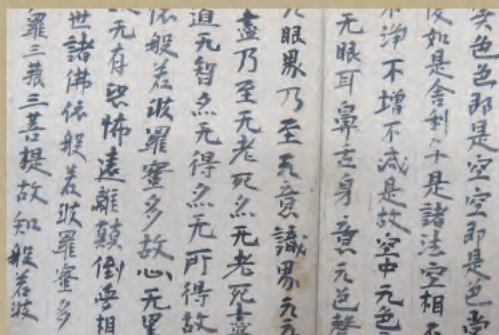 異色色即是空空即是色受
復如是舍利子是諸法空相
不淨不增不減是故空中无色
无眼耳鼻舌身意无色聲
无眼界乃至无意識界无无
盡乃至无老死亦无老死盡
道无智亦无得亦无所得故
依般若波羅蜜多故心无罣
无有恐怖遠離顛倒夢相
世諸佛依般若波羅蜜多
羅三藐三菩提故知般若波